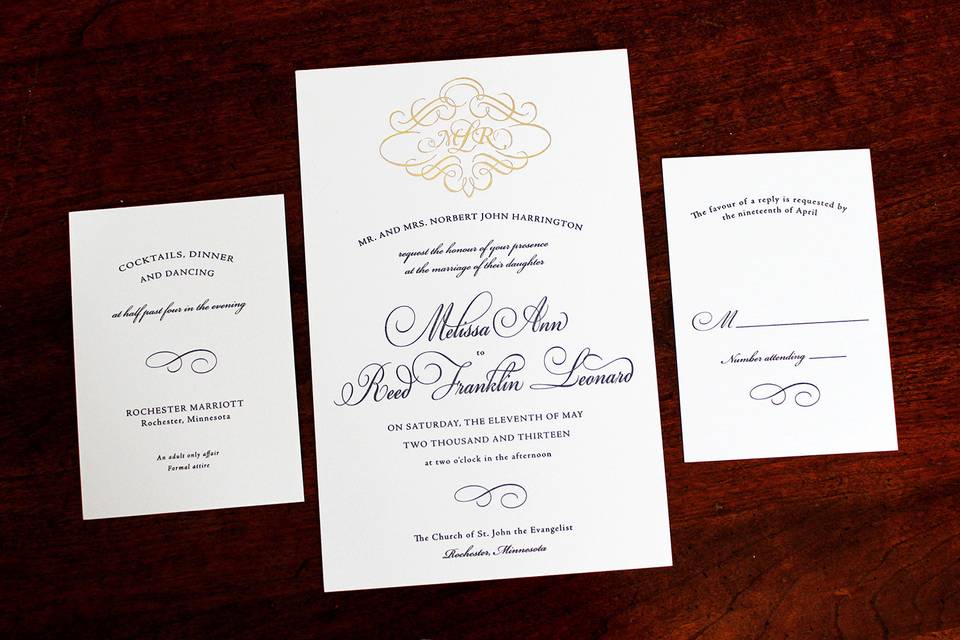 COCKTAILS, DINNER
AND DANCING
at half past four in the evening
ROCHESTER MARRIOTT
Rochester, Minnesota
An adult only affair
Formal attire
MLR
MR. AND MRS. NORBERT JOHN HARRINGTON
request the honour of your presence
at the marriage of their daughter
Melissa Ann
to
Reed Franklin Leonard
ON SATURDAY, THE ELEVENTH OF MAY
TWO THOUSAND AND THIRTEEN
at two o'clock in the afternoon
The Church of St. John the Evangelist
Rochester, Minnesota
The favour of a reply is requested by
the nineteenth of April
M
Number attending